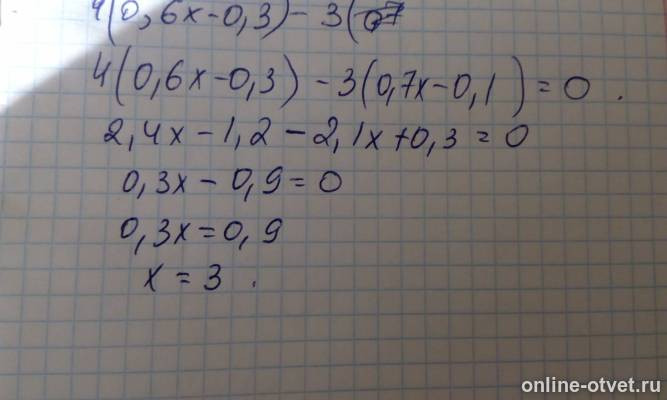 4(0,6x-0,3)-3(0,7
4(0,6x-0,3)-3(0,7x-0,1)=0.
2,4x-1,2-2,1x+0,3=0
0,3x-0,9=0
0,3x=0,9
x=3.
online-otvet.ru